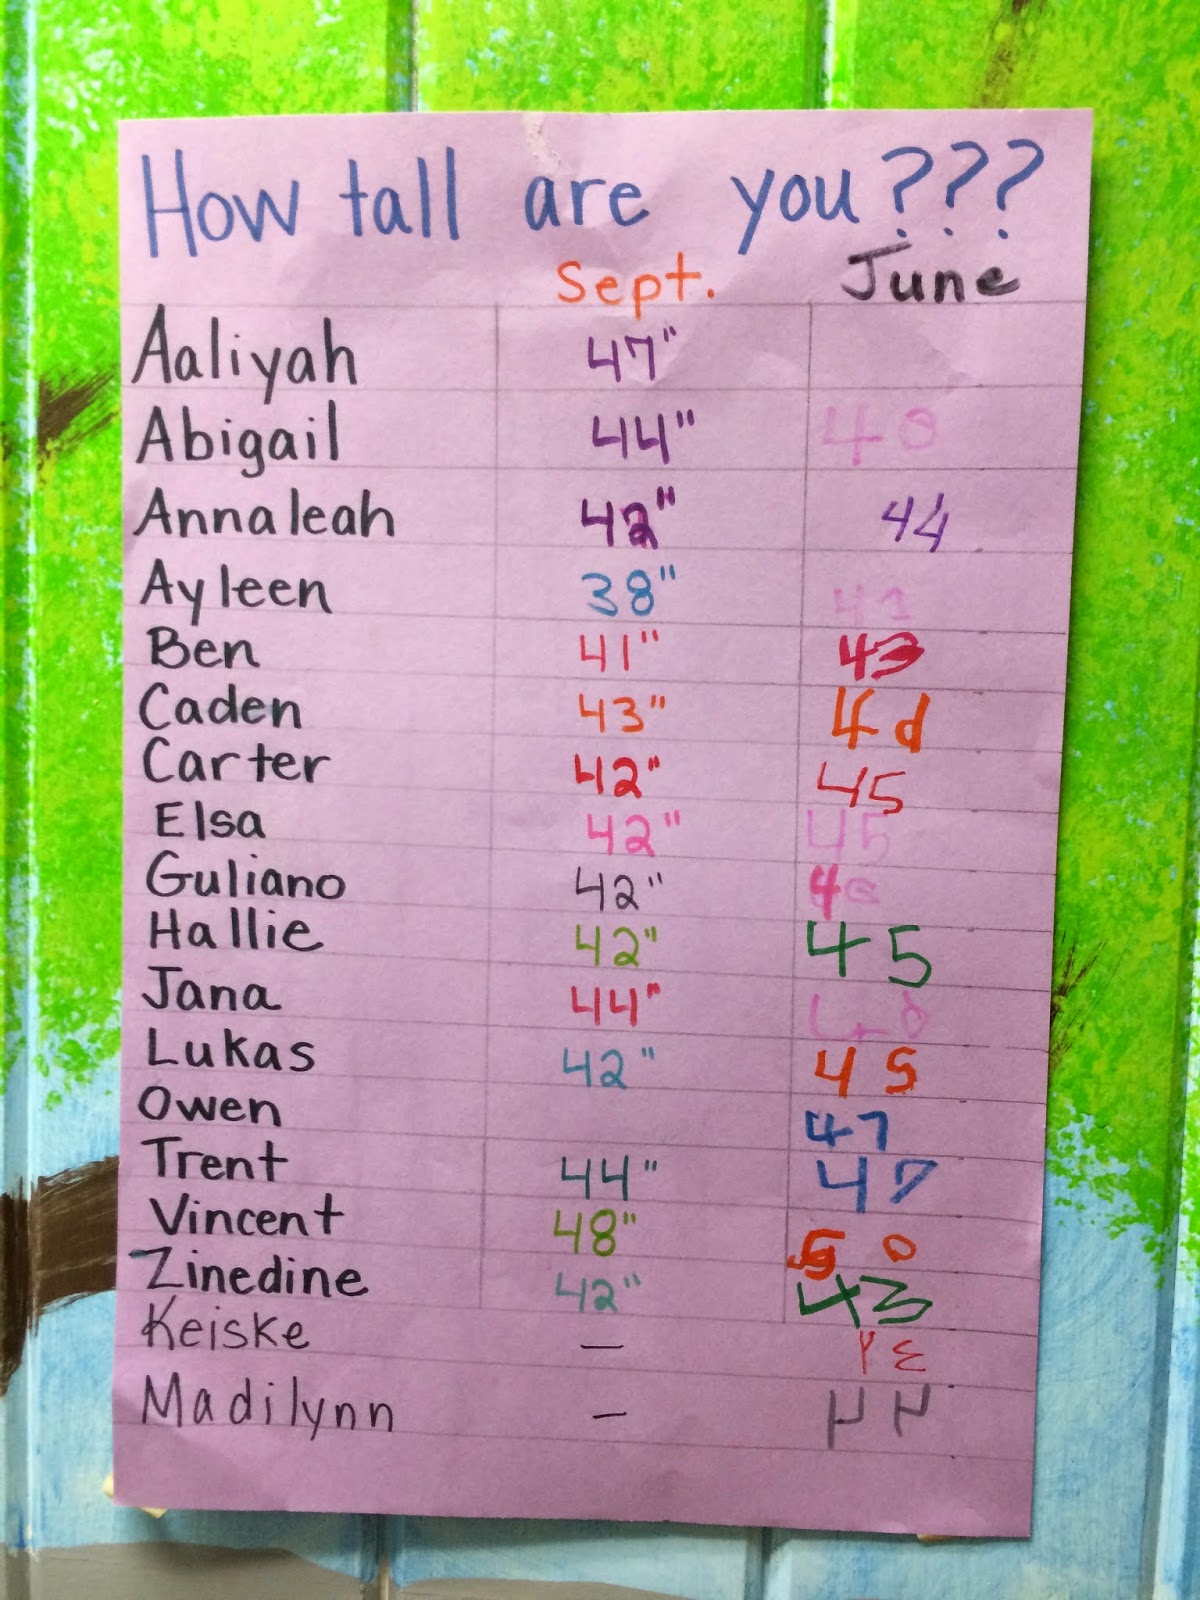 How tall are you???
Sept. June
Aaliyah 47"
Abigail 44"
Annaleah 42" 44
Ayleen 38"
Ben 41" 43
Caden 43"
Carter 42" 45
Elsa 42" 45
Guliano 42"
Hallie 42" 45
Jana 44"
Lukas 42" 45
Owen 47
Trent 44" 47
Vincent 48" 50
Zinedine 42" 43
Keiske –
Madilynn – 44